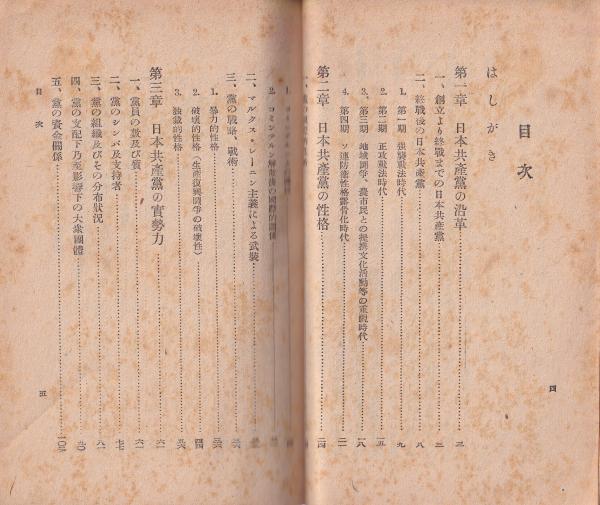 目次
はしがき
第一章 日本共產黨の沿革……三
一、創立より終戰までの日本共產黨……三
二、終戰後の日本共產黨……八
1. 第一期 强襲戰法時代……九
2. 第二期 正攻戰法時代……一五
3. 第三期 地域鬪爭、農市民との提携文化活動等の重視時代……一八
4. 第四期 ソ連防衛性格露骨化時代……二一
第二章 日本共產黨の性格……二四
2. コミンテルン解散後の國際的關係
二、マルクス・レーニン主義による武裝
三、黨の戰略、戰術
1. 暴力的性格
2. 破壞的性格(生產復興鬪爭の破壞性)……四四
3. 獨裁的性格
第三章 日本共產黨の實勢力……六一
一、黨員の數及び質……六一
二、黨のシンパ及支持者……七七
三、黨の組織及びその分布狀況……八一
四、黨の支配下乃至影響下の大衆團體……九〇
五、黨の資金關係……一〇三
四
目次
五